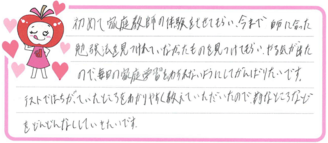 初めて家庭教師の体験をしてもらい、今まで 気になった
勉強法を見つけれていなかたものを見つけてもらい、やる気が出た
ので、毎日の家庭学習をわすれないようにしてがんばりたいです。
テストでまちがっていたところをわかりやすく教えていただいたので、苦手なところなど
をどんどんなくしていきたいです。